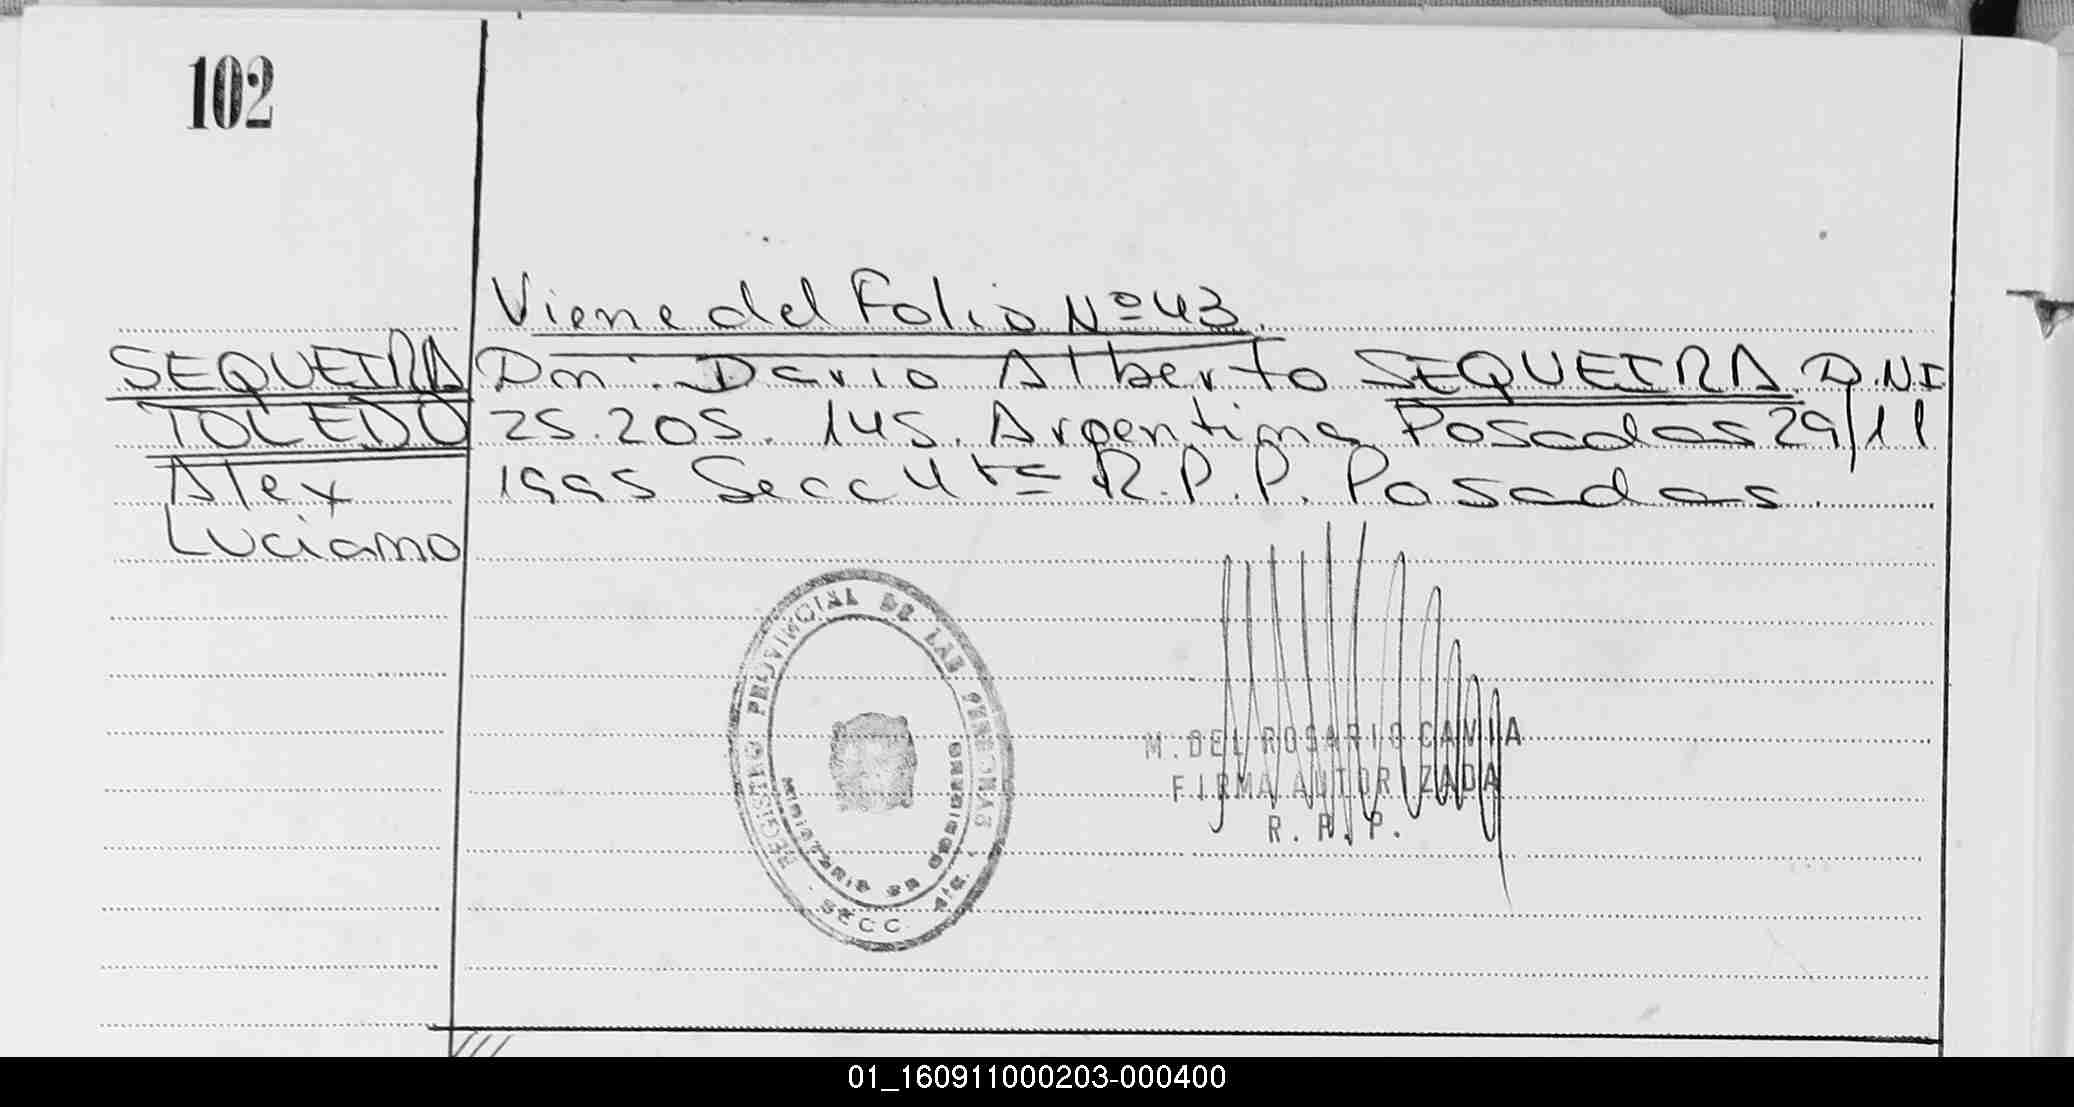 102
Viene del Folio Nº 43.
SEQUEIRA
TOLEDO
Alex
Luciano
Dn. Dario Alberto SEQUEIRA D.N.I
25.205.145. Argentina Posadas 29/11
1995 Secc 4ta R.P.P. Posadas.
REGISTRO PROVINCIAL DE LAS PERSONAS
MINISTERIO DE GOBIERNO
SECC. 4ta.
M. DEL ROSARIO CAVIA
FIRMA AUTORIZADA
R. P. P.
01_160911000203-000400